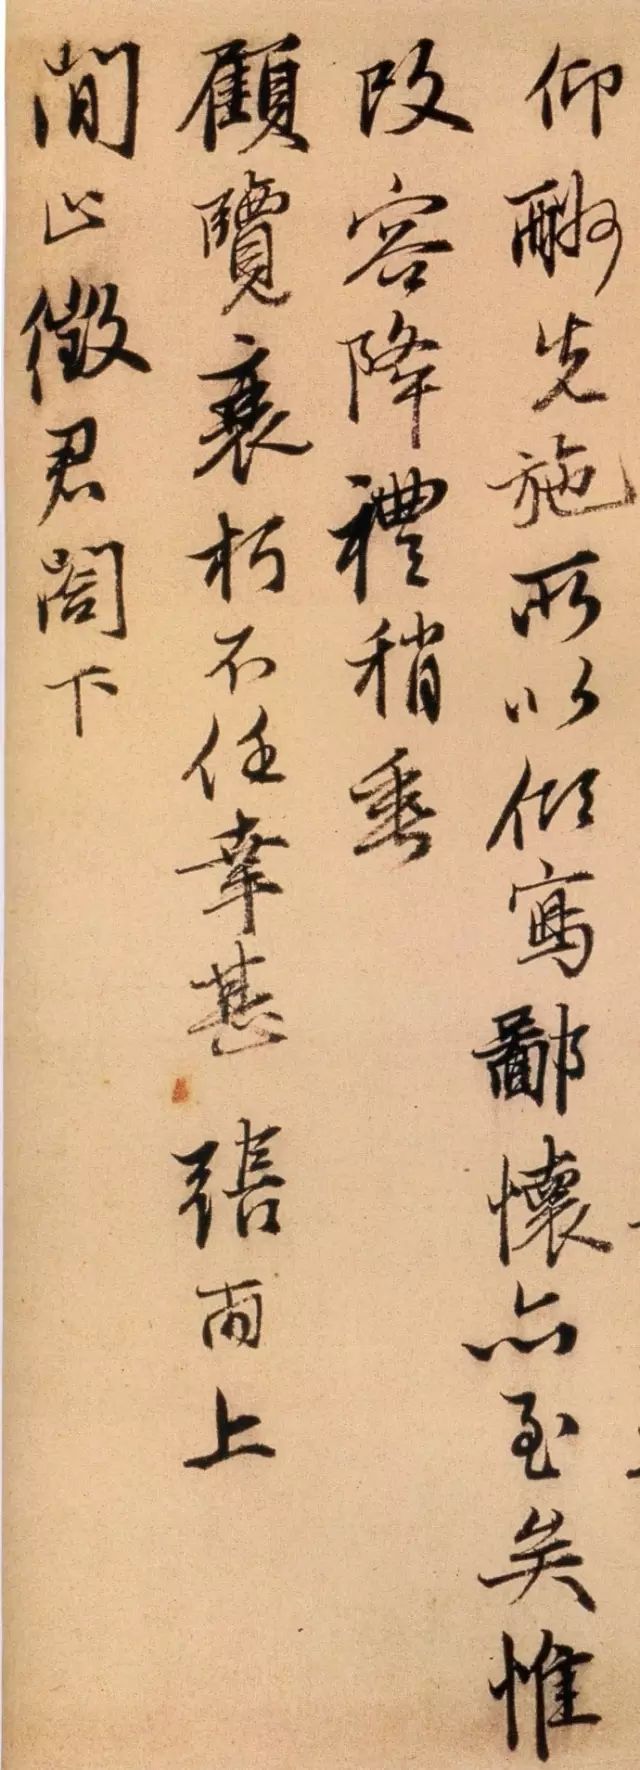 仰酬先施所以傾寫鄙懷亦至矣惟
改容降禮稍垂
顧覽衰朽不任幸甚 張雨上
閒止徵君閤下